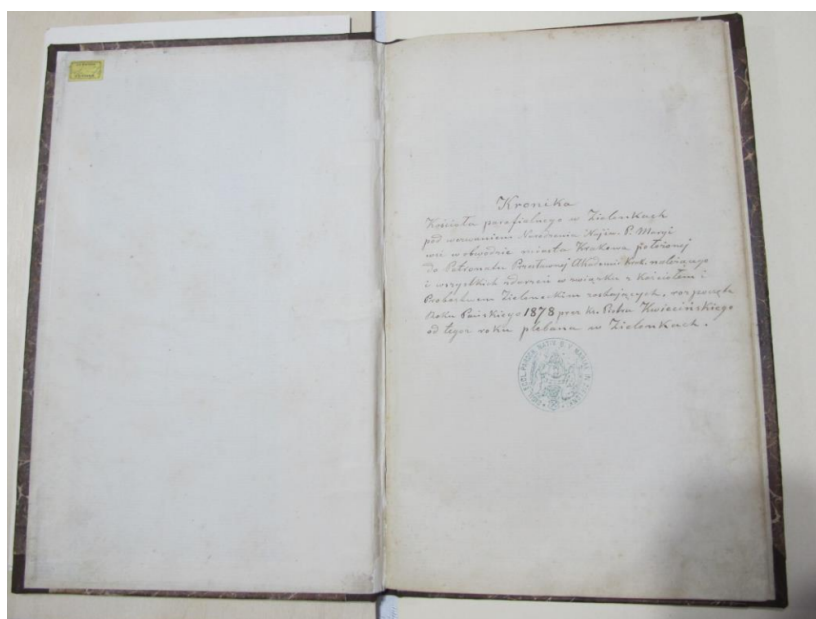 Kronika
Kościoła parafialnego w Zielonkach
pod wezwaniem Narodzenia Najśw. P. Maryi
wsi w obwodzie miasta Krakowa położonej
do Patronatu Prześwietnej Akademii Krak. należącego
i wszystkich zdarzeń w związku z Kościołem i
Probostwem Zieloneckim zostających, rozpoczęta
Roku Pańskiego 1878 przez ks. Kwiecińskiego
od tegoż roku plebana w Zielonkach.